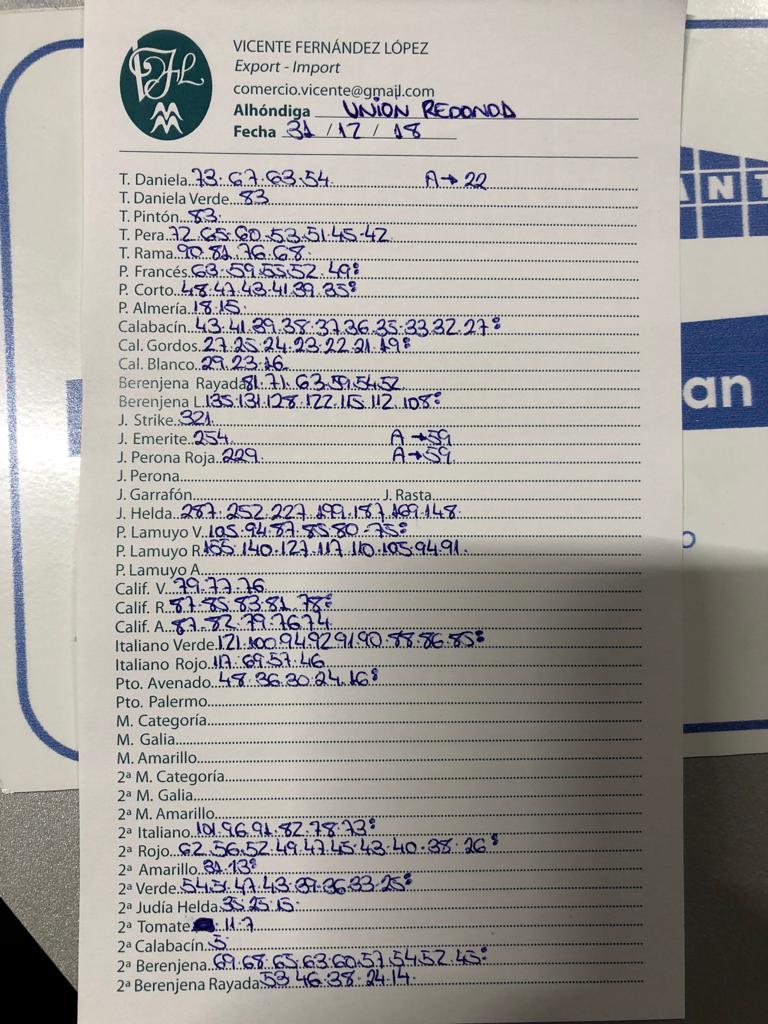 VICENTE FERNÁNDEZ LÓPEZ
Export - Import
comercio.vicente@gmail.com
Alhóndiga UNION REDONDA
Fecha 31 / 12 / 18
T. Daniela 73. 67. 63. 54 A→22
T. Daniela Verde 83
T. Pintón 83
T. Pera 72. 65. 60. 53. 51. 45. 42
T. Rama 90. 81. 76. 68
P. Francés 63. 59. 55. 52. 49:
P. Corto 48. 47. 43. 41. 39. 35:
P. Almería 18. 15
Calabacín 43. 41. 39. 38. 37. 36. 35. 33. 32. 27:
Cal. Gordos 27. 25. 24. 23. 22. 21. 19:
Cal. Blanco 29. 23. 16
Berenjena Rayada 81. 71. 63. 59. 54. 52
Berenjena L. 135. 131. 128. 122. 115. 112. 108:
J. Strike 321
J. Emerite 254 A→59
J. Perona Roja 229 A→59
J. Perona
J. Garrafón J. Rasta
J. Helda 287. 252. 227. 199. 187. 169. 148
P. Lamuyo V. 105. 94. 87. 85. 80. 75:
P. Lamuyo R. 155. 140. 127. 117. 110. 105. 94. 91
P. Lamuyo A
Calif. V. 79. 77. 76
Calif. R. 87. 85. 83. 81. 78:
Calif. A. 87. 82. 79. 76. 74
Italiano Verde 121. 100. 94. 92. 91. 90. 88. 86. 85:
Italiano Rojo 117. 69. 57. 46
Pto. Avenado 48. 36. 30. 24. 16:
Pto. Palermo
M. Categoría
M. Galia
M. Amarillo
2ª M. Categoría
2ª M. Galia
2ª M. Amarillo
2ª Italiano 101. 96. 91. 82. 78. 73:
2ª Rojo 62. 56. 52. 49. 47. 45. 43. 40. 38. 26:
2ª Amarillo 31. 13:
2ª Verde 54. 51. 47. 43. 39. 36. 33. 25:
2ª Judía Helda 35. 25. 15
2ª Tomate 11. 7
2ª Calabacín 5
2ª Berenjena 69. 68. 65. 63. 60. 57. 54. 52. 45:
2ª Berenjena Rayada 53. 46. 38. 24. 14
ANT
an